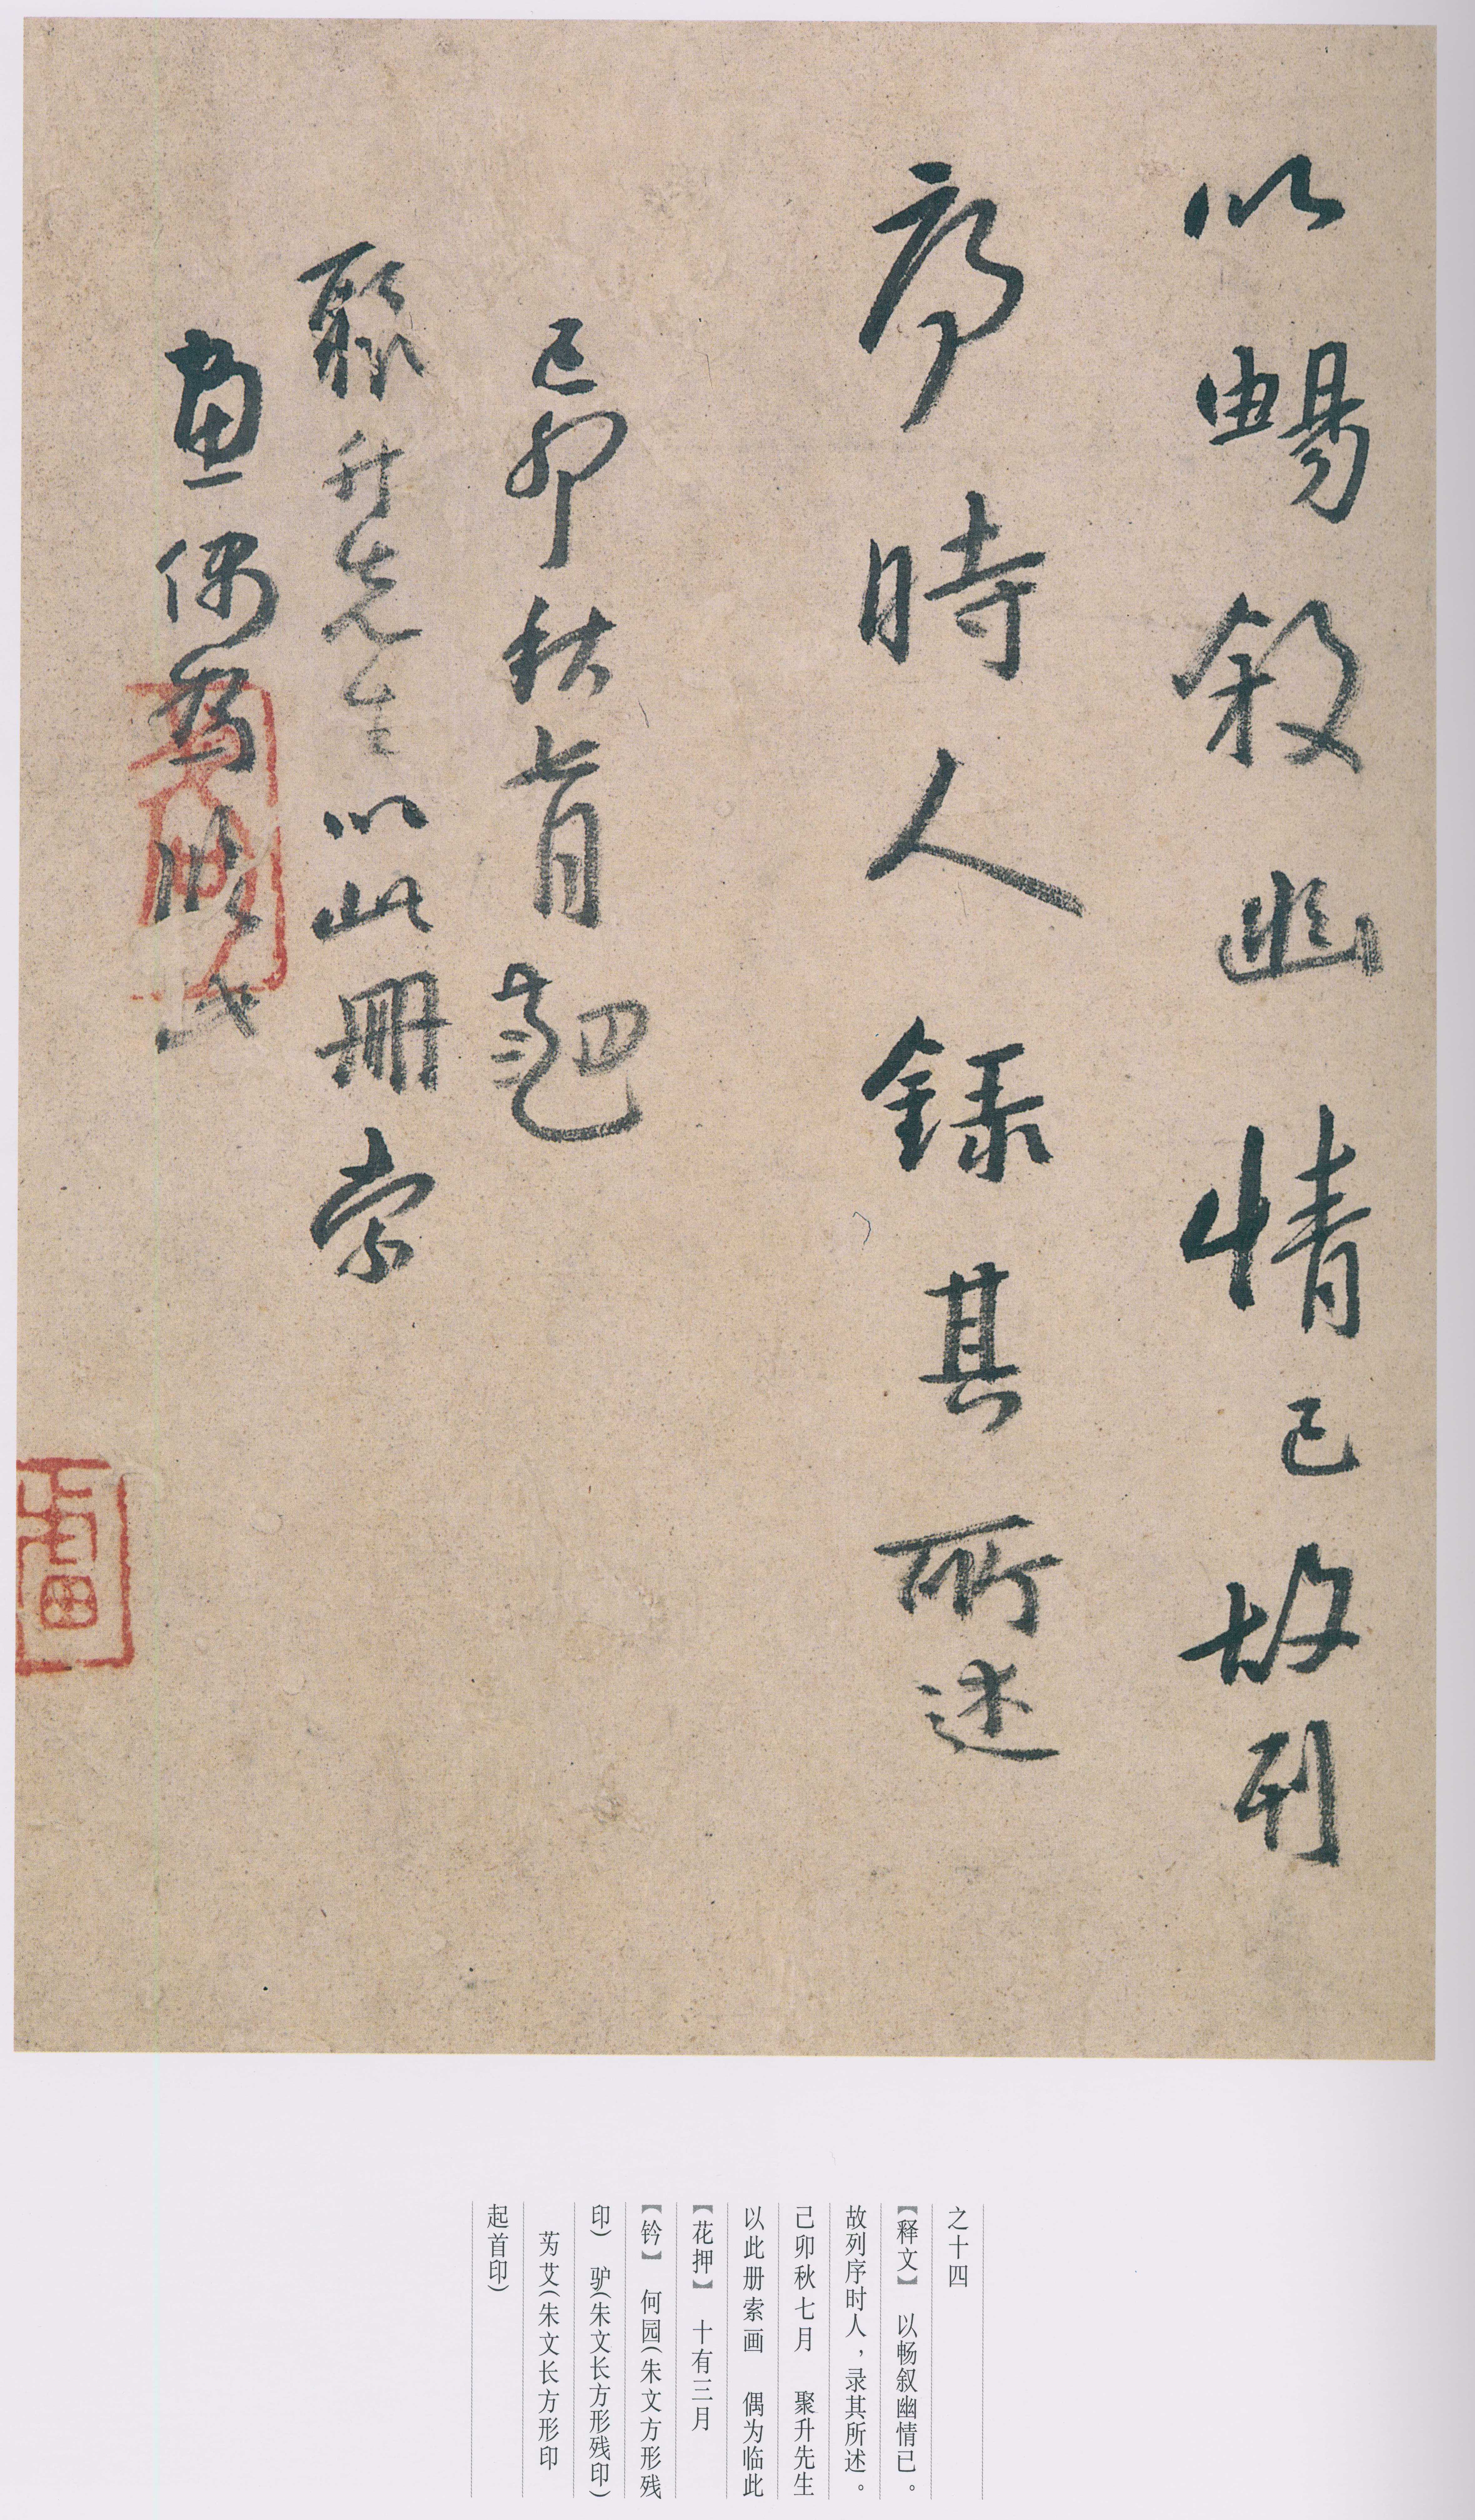 以暢敘幽情已故列
序時人錄其所述
己卯秋七月
聚升先生以此冊索
畫偶為臨此
之十四
【释文】 以畅叙幽情已。
故列序时人，录其所述。
己卯秋七月 聚升先生
以此册索画 偶为临此
【花押】 十有三月
【钤】 何园（朱文方形残
印） 驴（朱文长方形残印）
艻艾（朱文长方形印
起首印）